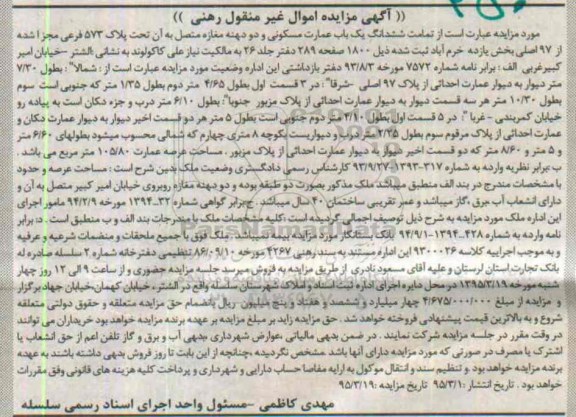 (( آگهی مزایده اموال غیر منقول رهنی ))
مورد مزایده عبارت است از تمامت ششدانگ یک باب عمارت مسکونی و دو دهنه مغازه متصل به آن تحت پلاک ۵۷۳ فرعی مجزا شده
از ۹۷ اصلی بخش یازده خرم آباد ثبت شده ذیل ۱۸۰۰ صفحه ۲۸۹ دفتر جلد ۲۶ به مالکیت نیاز علی کاکولوند به نشانی :الشتر -خیابان امیر
کبیرغربی الف : برابر نامه شماره ۷۵۷۲ مورخه ۹۳/۸/۳ دفتر بازداشتی این اداره وضعیت مورد مزایده عبارت است از : شمالا" : بطول ۷/۳۰
متر دیوار به دیوار عمارت احداثی از پلاک ۹۷ اصلی -شرقا" : در ۳ قسمت اول بطول ۴/۶۵ متر دوم بطول ۱/۳۵ متر که جنوبی است سوم
بطول ۱۰/۳۰ متر هر سه قسمت دیوار به دیوار عمارت احداثی از پلاک مزبور جنوبا": بطول ۶/۱۰ متر درب و جزء دکان است به پیاده رو
خیابان کمربندی - غربا ": در ۵ قسمت اول بطول ۴/۱۰ متر دوم جنوبی است بطول ۵ متر هر دو قسمت اخیر دیوار به دیوار عمارت دکان و
عمارت احداثی از پلاک مرقوم سوم بطول ۲/۲۵ متر درب و دیواریست بکوچه ۸ متری چهارم که شمالی محسوب میشود بطولهای ۶/۶۰ متر
و ۵ متر و ۸/۶۰ متر که دو قسمت اخیر دیوار به دیوار عمارت احداثی از پلاک مزبور . مساحت عرصه عمارت ۱۰۵/۸۰ متر مربع می باشد .
ب:برابر نظریه وارده به شماره ۳۱۷-۱۳۹۳-۹۳/۹/۲۷ کارشناس رسمی دادگستری وضعیت ملک بدین شرح است : مساحت عرصه و حدود
با مشخصات مندرج در بند الف منطبق میباشد ملک مذکور بصورت دو طبقه بوده و دو دهنه مغازه روبروی خیابان امیر کبیر متصل به آن و
دارای انشعاب آب ،برق ،گاز میباشد و عمر تقریبی ساختمان ۴۰ سال میباشد . ج:برابر گواهی شماره ۳۲-۱۳۹۴ مورخه ۹۴/۲/۹ مامور اجرای
این اداره ملک مورد مزایده به شرح ذیل توصیف اجمالی گردیده است :کلیه مشخصات ملک با مندرجات بند الف و ب منطبق است . د: برابر
نامه وارده به شماره ۴۲۸-۱۳۹۴-۱۴/۹/۱ بانک تجارت ملک مورد مزایده بیمه میباشد. ملک فوق با جمیع ملحقات و منضمات شرعیه و عرفیه
و به موجب اجراییه کلاسه ۹۳۰۰۰۲۶ این اداره مستند به سند رهنی ۴۲۶۷ مورخه ۸۶/۰۹/۱۰ تنظیمی دفترخانه شماره ۲ سلسله صادره له
بانک تجارت استان لرستان و علیه آقای مسعود نادری از طریق مزایده به فروش میرسد جلسه مزایده حضوری و از ساعت ۹ الی ۱۲ روز چهار
شنبه مورخه ۱۳۹۵/۳/۱۹ در محل دایره اجرای اداره ثبت اسناد و املاک شهرستان سلسله واقع در الشتر، خیابان کهمان،خیابان جهاد برگزار
و مزایده از مبلغ ۴/۶۷۵/۰۰۰/۰۰۰ چهار میلیارد و ششصد و هفتاد و پنج میلیون ریال بانضمام حق مزایده متعلقه و حقوق دولتی متعلقه
شروع و به بالاترین قیمت پیشنهادی فروخته خواهد شد . حق مزایده زاید بر مبلغ مزایده بر عهده برنده مزایده خواهد بود خریداران می توانند
در وقت مقرر در جلسه مزایده شرکت نمایند . در ضمن بدهی مالیاتی ،عوارض شهرداری ،بدهی آب و برق و گاز تلفن اعم از حق انشعاب یا
اشتراک یا مصرف در صورتی که مورد مزایده دارای آنها باشد مشخص نگردیده ،چنانچه از این بابت تا روز فروش بدهی داشته باشند به عهده
برنده مزایده خواهد بود .و تنظیم سند و انتقال موکول به ارایه مفاصا حساب دارایی و شهرداری و پرداخت کلیه هزینه های قانونی وفق مقررات
خواهد بود . تاریخ انتشار :۹۵/۳/۱ تاریخ مزایده :۹۵/۳/۱۹
مهدی کاظمی -مسئول واحد اجرای اسناد رسمی سلسله